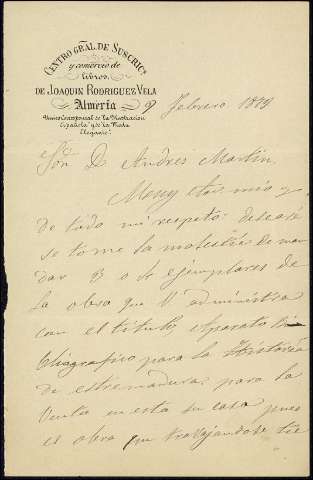 CENTRO GRAL. DE SUSCRICS.
y comercio de
libros,
DE JOAQUIN RODRIGUEZ VELA
Almería
Unico Corresponsal de la Ilustracion
Española y de la Moda
Elegante.
9 Febrero 1879
Sor. D. Andres Martin.
Mouy etor mio y
de todo mi respeto: desearé
se tome la molestia de man
dar 3 o 4 ejemplares de
la obra que V administra
con el titulo, Aparato Bi-
bliografico para la Historia
de estremadura, para la
Venta en esta su casa pues
es obra que travajandola tie